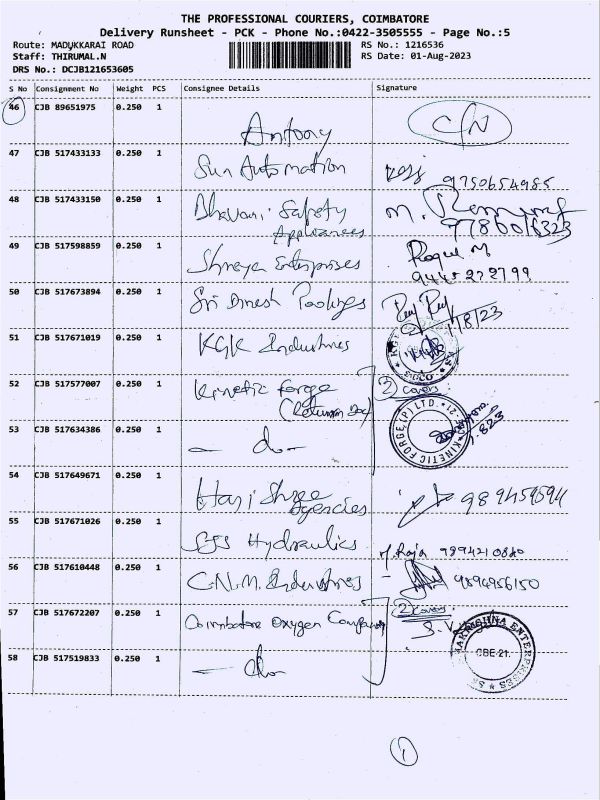 THE PROFESSIONAL COURIERS, COIMBATORE
Delivery Runsheet - PCK - Phone No.:0422-3505555 - Page No.:5
Route: MADUKKARAI ROAD RS No.: 1216536
Staff: THIRUMAL.N RS Date: 01-Aug-2023
DRS No.: DCJB121653605
S No Consignment No Weight PCS Consignee Details Signature
46 CJB 89651975 0.250 1 Antony C/N
47 CJB 517433133 0.250 1 Sun Automation 9750654985
48 CJB 517433150 0.250 1 Bhavani Safety
Appliances
49 CJB 517598859 0.250 1 Shreya Enterprises 9445272799
50 CJB 517673894 0.250 1 Sri Dinesh 1/8/23
51 CJB 517671019 0.250 1 KGK Industries
52 CJB 517577007 0.250 1 Kinetic Forge 2 covers
53 CJB 517634386 0.250 1 — do — KINETIC FORGE (P) LTD.
54 CJB 517649671 0.250 1 Hari Shree
Agencies
55 CJB 517671026 0.250 1 SJS Hydraulics M. Raja
56 CJB 517610448 0.250 1 C.N.M. Industries 9894956150
57 CJB 517672207 0.250 1 Coimbatore Oxygen Company 2 covers
58 CJB 517519833 0.250 1 — do — CBE-21.
1